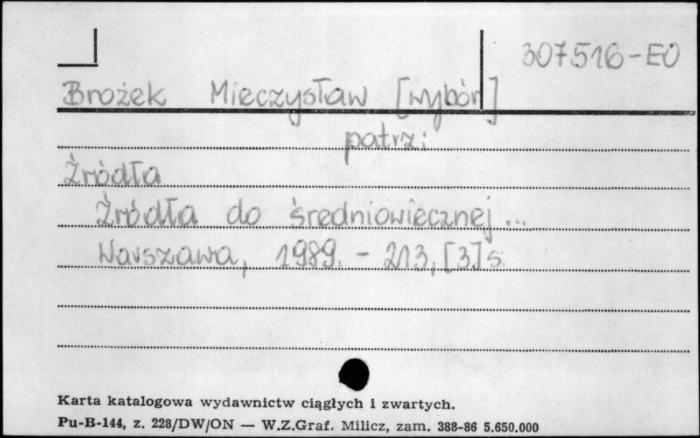 307516-EO
Brożek Mieczysław [wybór]
patrz:
Źródła
Źródła do średniowiecznej...
Warszawa, 1989. - 213, [3] s.
Karta katalogowa wydawnictw ciągłych i zwartych.
Pu-B-144, z. 228/DW/ON — W.Z.Graf. Milicz, zam. 388-86 5.650.000